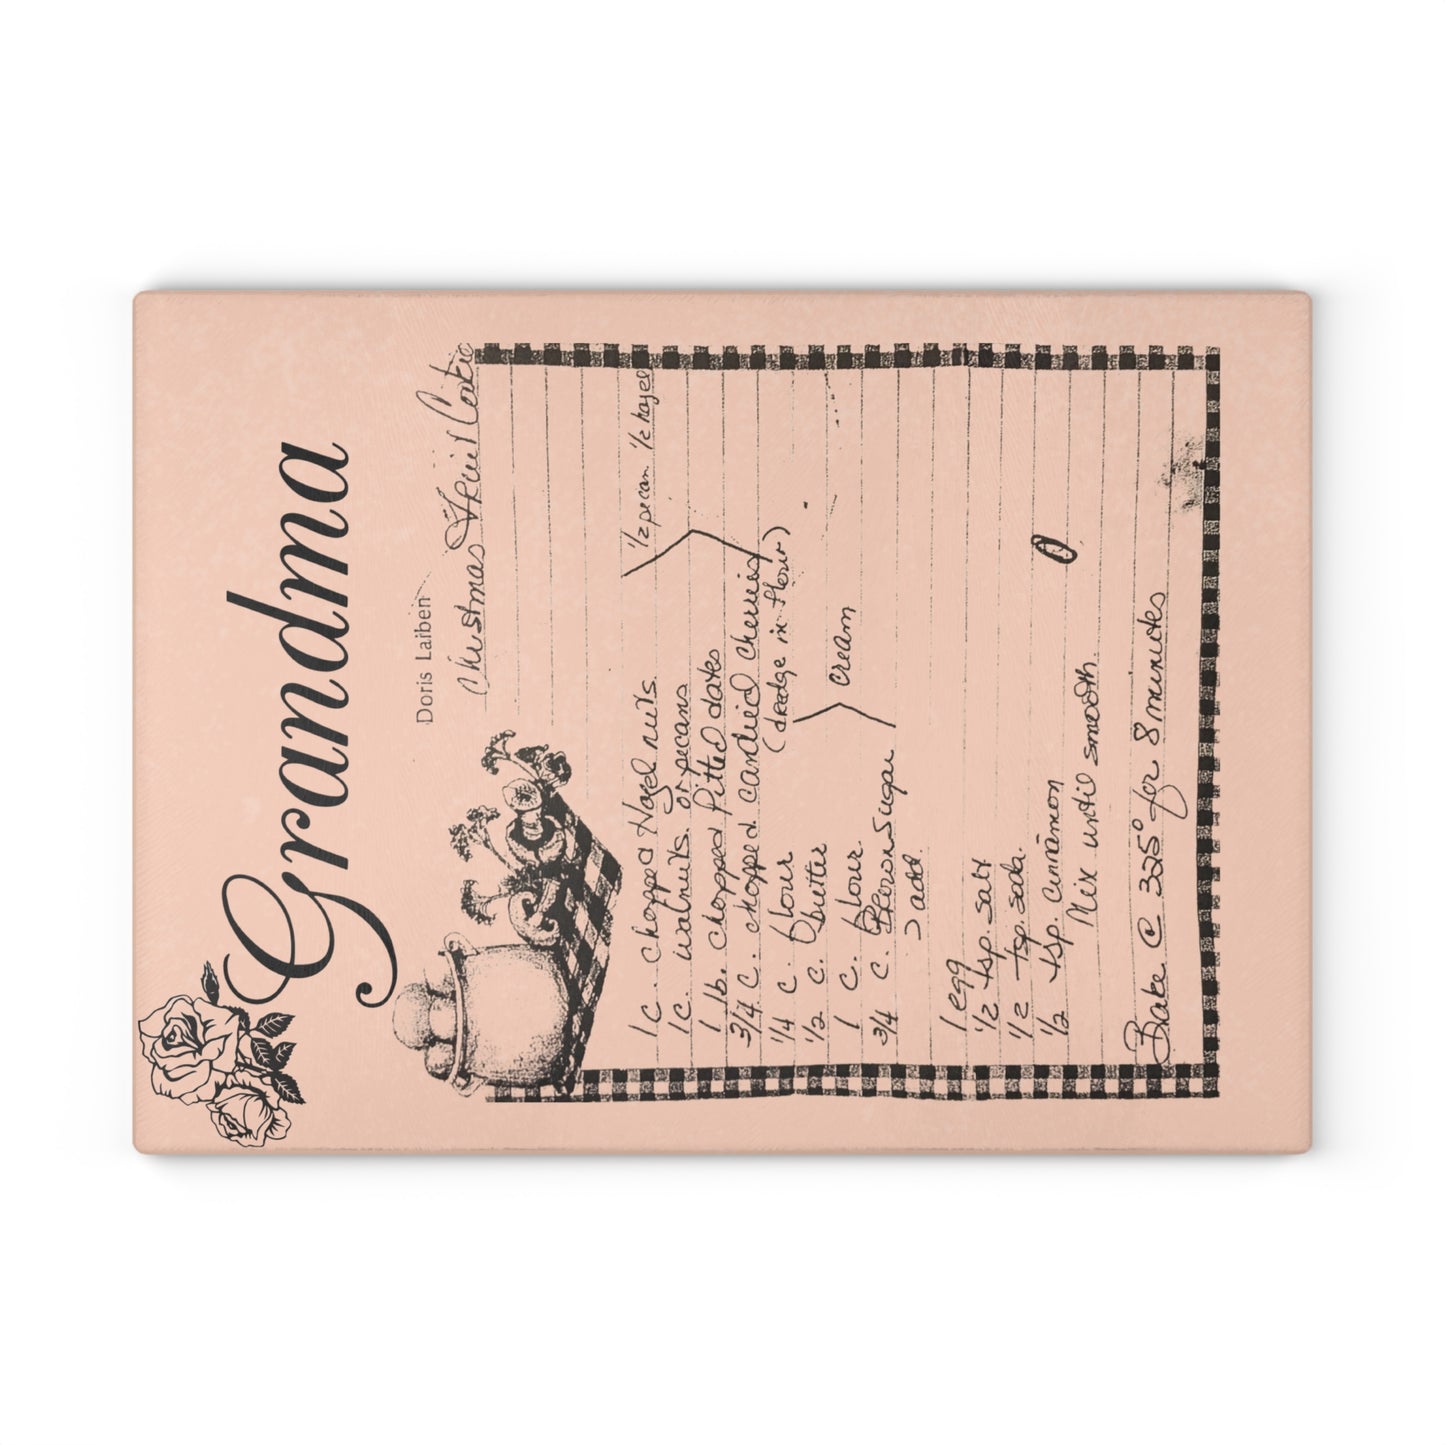 Grandma
Doris Laiben
Christmas Fruit Cookie
1 c. chopped Hazel nuts
1 c. walnuts or pecans
1/2 pecan 1/2 hazel
1 lb. chopped pitted dates
3/4 c. chopped candied cherries
1/4 c. flour (dredge in flour)
1/2 c. butter
1 c. flour
cream
3/4 c. Brown Sugar
add
1 egg
1/2 tsp. salt
1/2 tsp. soda.
1/2 tsp. cinnamon
Mix until smooth.
Bake @ 325° for 8 minutes